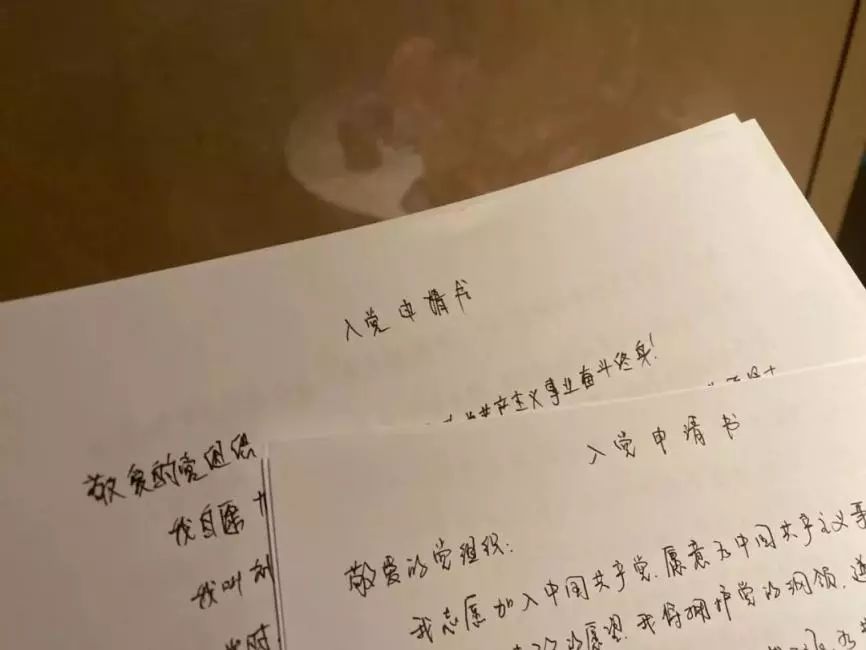 入党申请书
共产主义事业奋斗终身!
敬爱的党组织
我自愿
我叫刘
入党申请书
敬爱的党组织:
我志愿加入中国共产党,愿意为中国共产主义事
的愿望.我将拥护党的纲领,遵